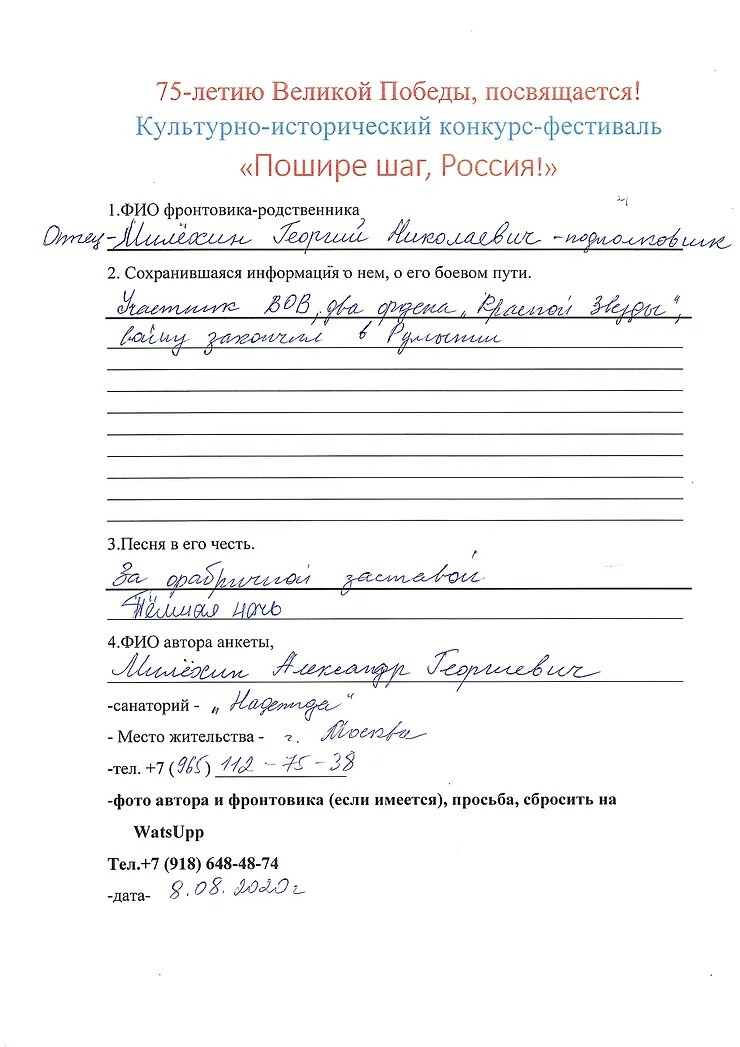 75-летию Великой Победы, посвящается!
Культурно-исторический конкурс-фестиваль
«Пошире шаг, Россия!»
1.ФИО фронтовика-родственника
Отец-Милёхин Георгий Николаевич - подполковник
2. Сохранившаяся информация о нем, о его боевом пути.
Участник ВОВ, два ордена „Красной Звезды",
войну закончил в Румынии
3.Песня в его честь.
За фабричной заставой
Тёмная ночь
4.ФИО автора анкеты,
Милёхин Александр Георгиевич
-санаторий - „Надежда"
- Место жительства - г. Москва
-тел. +7 (965) 112-75-38
-фото автора и фронтовика (если имеется), просьба, сбросить на
WatsUpp
Тел.+7 (918) 648-48-74
-дата- 8.08.2020г